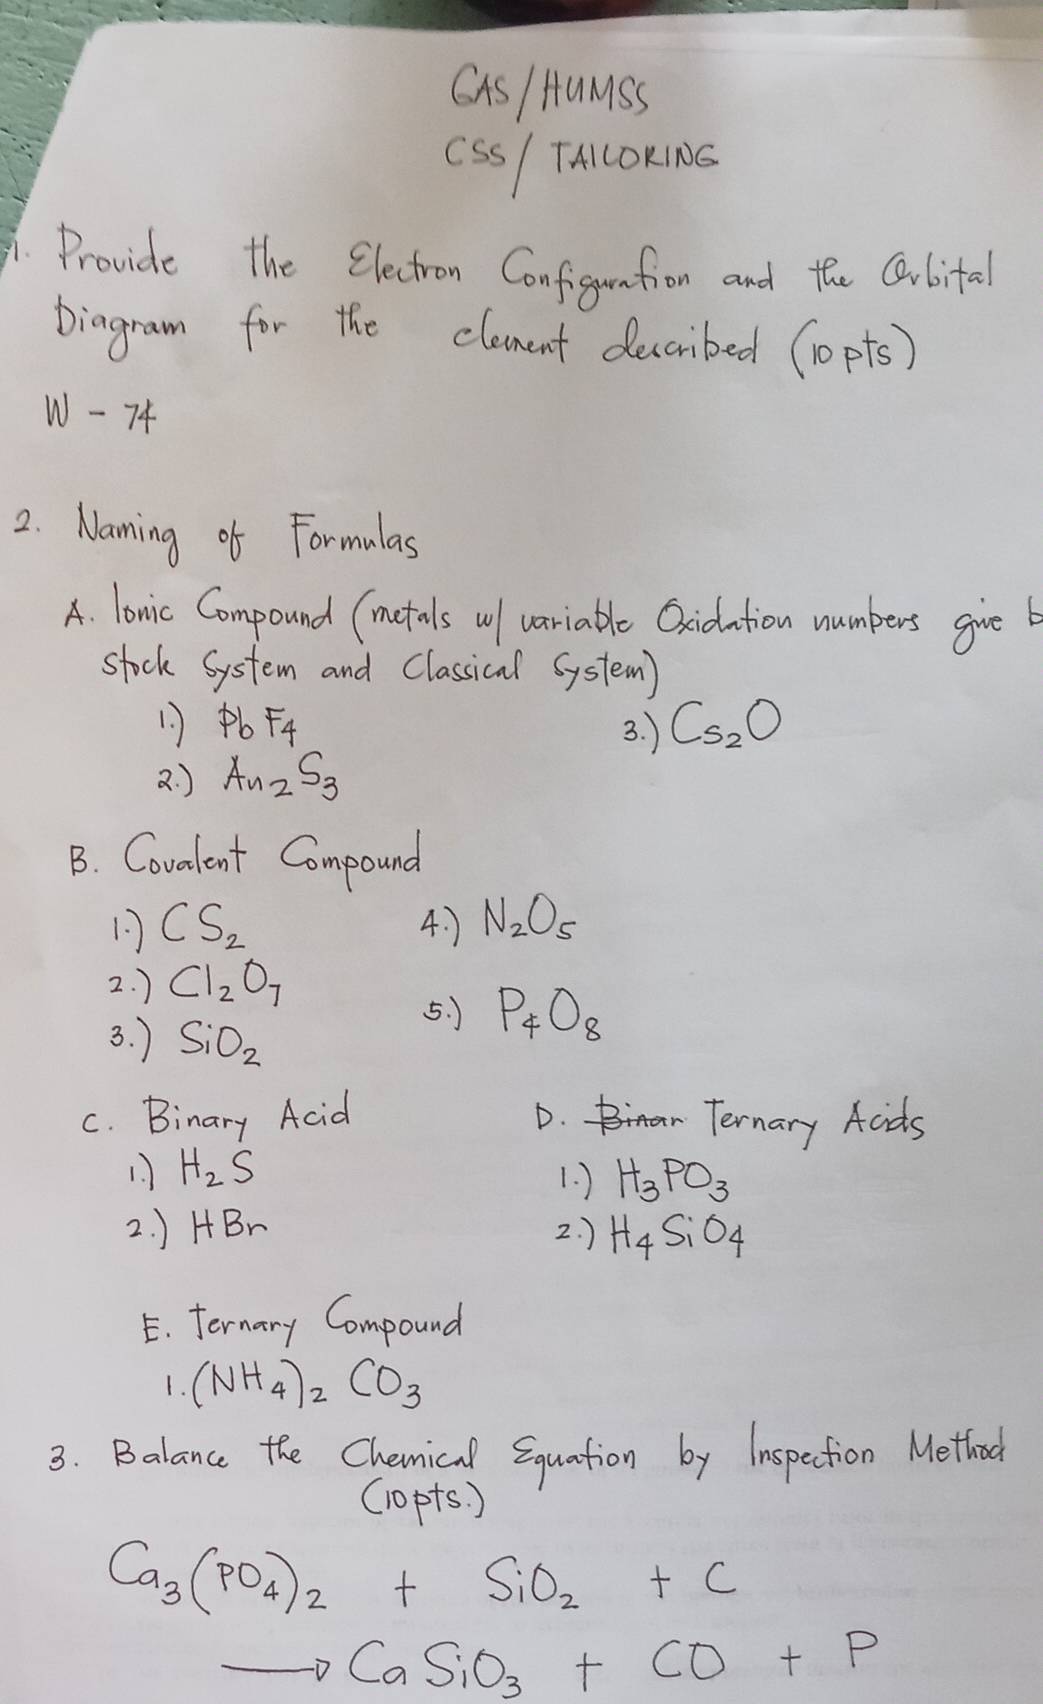 GAS/HUMSS
CSS/TAILORING
1. Provide the Electron Configuration and the Orbital
Diagram for the element described (10 pts)
W - 74
2. Naming of Formulas
A. Ionic Compound (metals w/ variable Oxidation numbers give
stock System and Classical System)
1.) PbF₄ 3.) Cs₂O
2.) Au₂S₃
B. Covalent Compound
1.) CS₂ 4.) N₂O₅
2.) Cl₂O₇
5.) P₄O₈
3.) SiO₂
C. Binary Acid D. Binar Ternary Acids
1.) H₂S 1.) H₃PO₃
2.) HBr 2.) H₄SiO₄
E. Ternary Compound
1. (NH₄)₂CO₃
3. Balance the Chemical Equation by Inspection Method
(10 pts.)
Ca₃(PO₄)₂ + SiO₂ + C
→ CaSiO₃ + CO + P